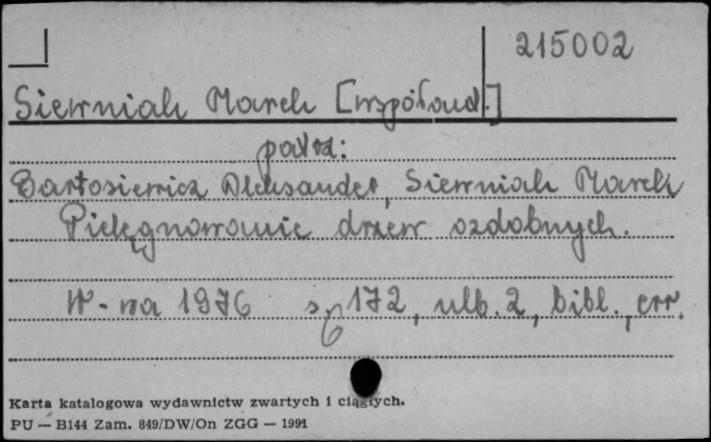 215002
Siewniak Marek [współaut.]
patrz:
Bartosiewicz Aleksander, Siewniak Marek
Pielęgnowanie drzew ozdobnych.
W-wa 1976 s. 172, nlb. 2, bibl., err.
Karta katalogowa wydawnictw zwartych i ciągłych.
PU — B144 Zam. 849/DW/On ZGG — 1991